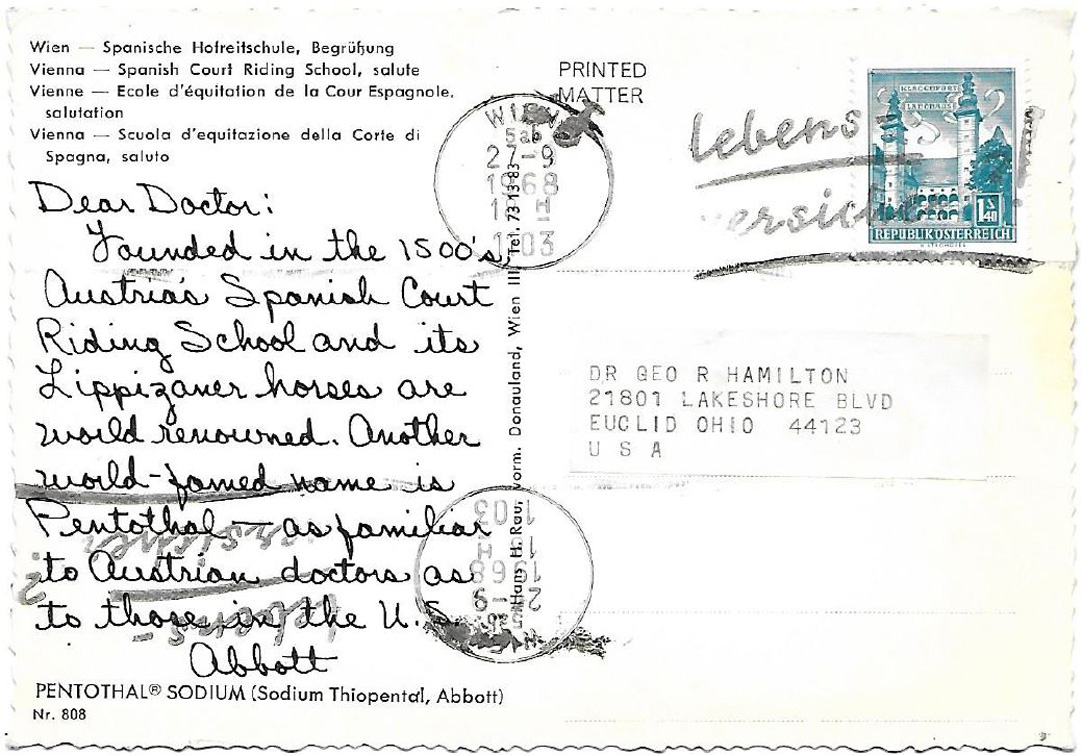 Wien — Spanische Hofreitschule, Begrüßung
Vienna — Spanish Court Riding School, salute
Vienne — Ecole d'équitation de la Cour Espagnole,
salutation
Vienna — Scuola d'equitazione della Corte di
Spagna, saluto
PRINTED
MATTER
WIEN
27-9
1968
1103
lebens-
KLAGENFURT
LANDHAUS
S
1.40
REPUBLIK ÖSTERREICH
Dear Doctor:
Founded in the 1500's
Austria's Spanish Court
Riding School and its
Lippizaner horses are
world renowned. Another
world-famed name is
Pentothal — as familiar
to Austrian doctors as
to those in the U.S.
Abbott
PENTOTHAL® SODIUM (Sodium Thiopental, Abbott)
Nr. 808
Hans H. Rau, vorm. Donauland, Wien III, Tel. 73-13-83
DR GEO R HAMILTON
21801 LAKESHORE BLVD
EUCLID OHIO 44123
U S A
1103
1968
27-9
lebens-